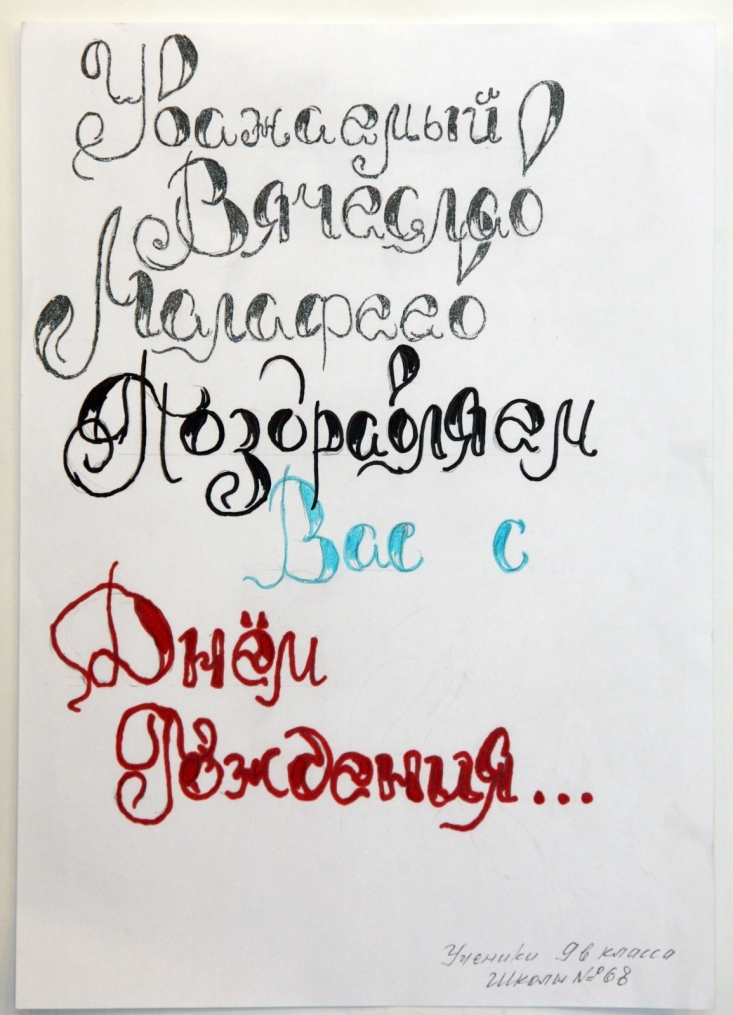 Уважаемый
Вячеслав
Малафеев
Поздравляем
Вас с
Днём
Рождения...
Ученики 9в класса
Школы №68